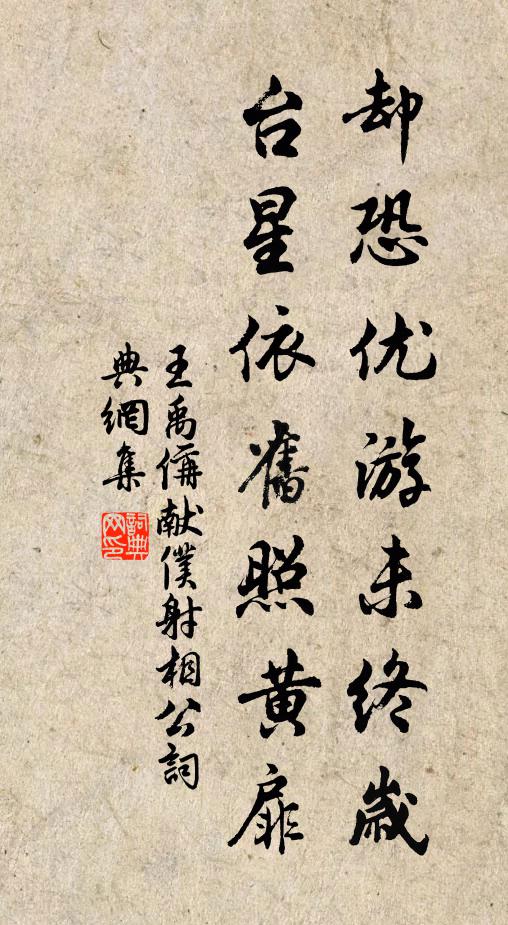 却恐优游未终岁
台星依旧照黄扉
王禹偁献仆射相公词
典網集
詞典网印